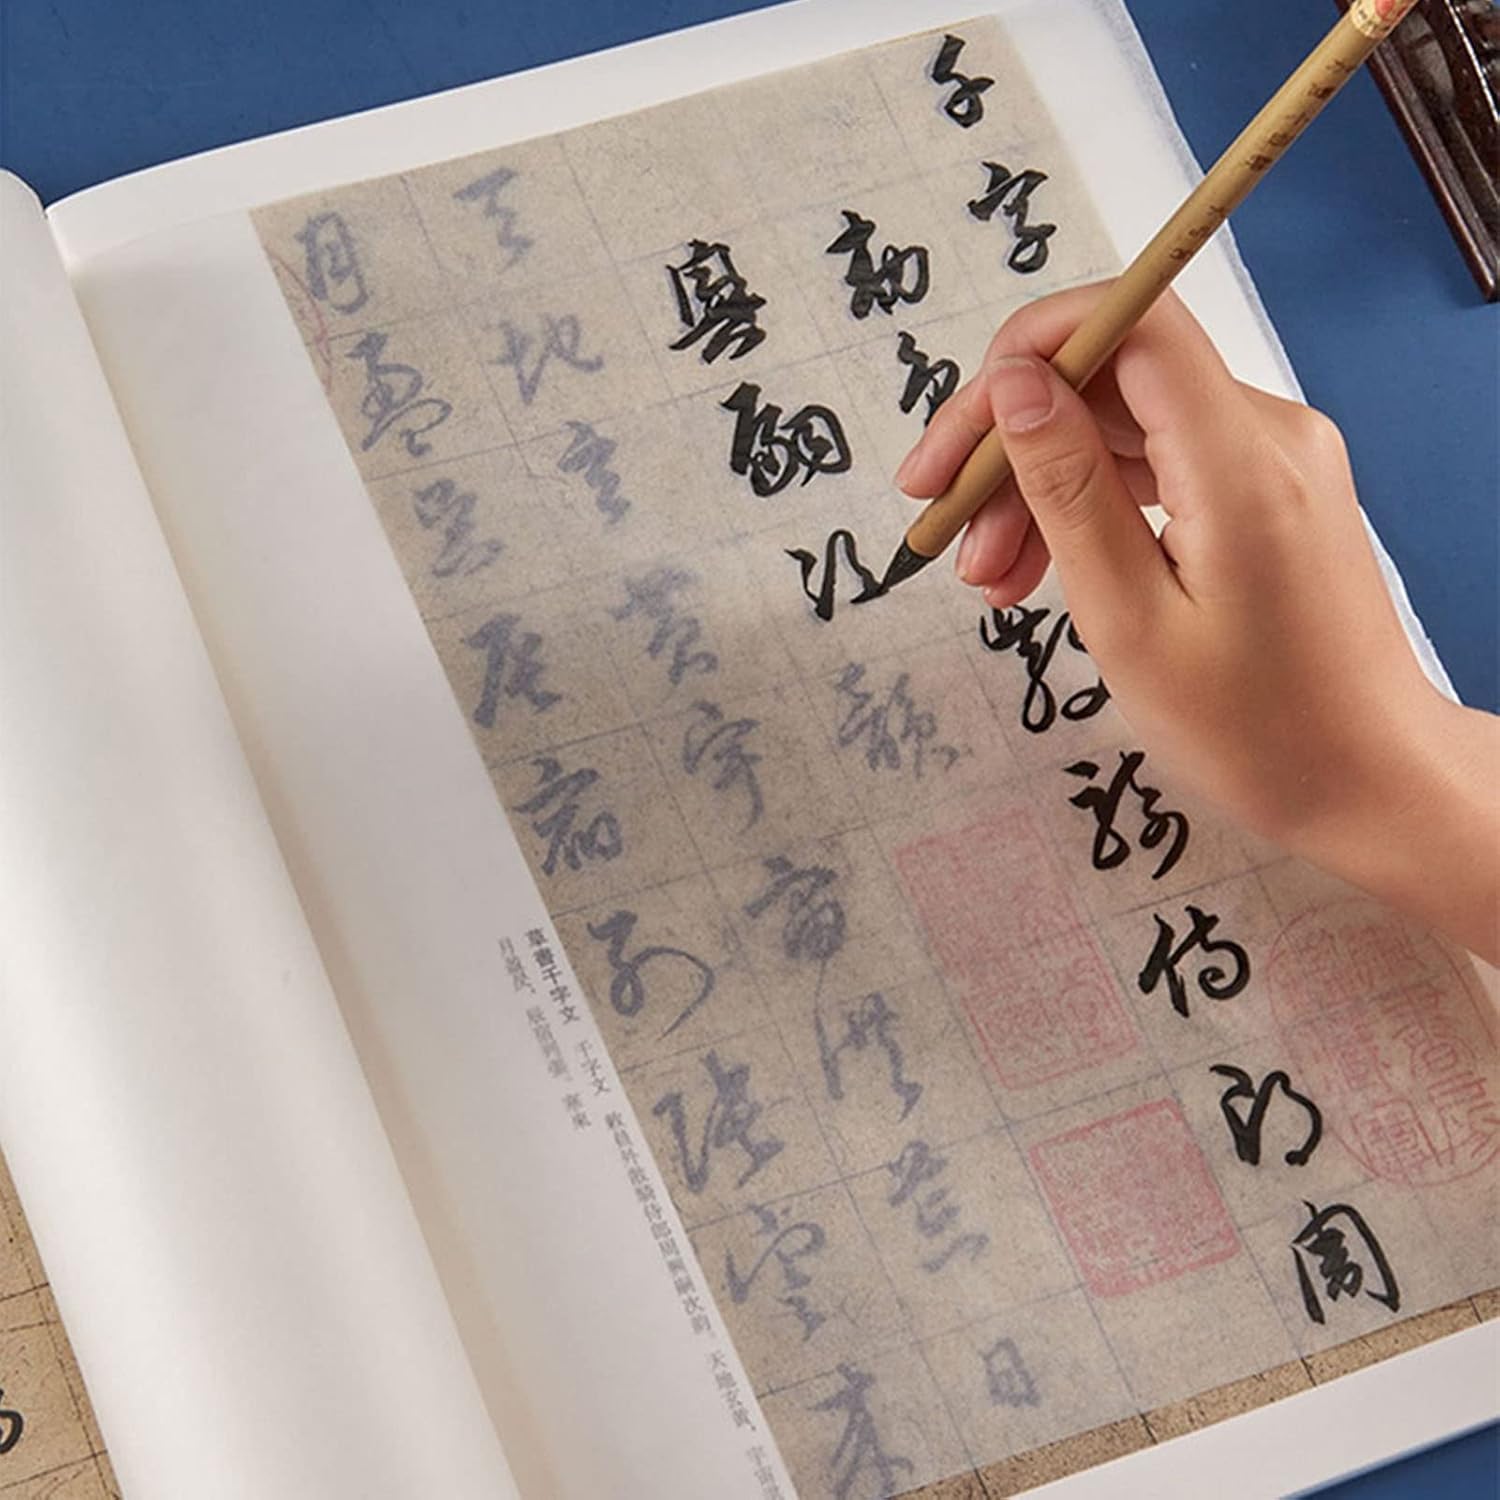 千字
勅員散騎侍郎周
興嗣次韻
天地玄黃宇宙洪荒日
月盈昃辰宿列張寒來
草書千字文 千字文 敕員外散騎侍郎周興嗣次韵 天地玄黃，宇宙
月盈昃，辰宿列張。寒來